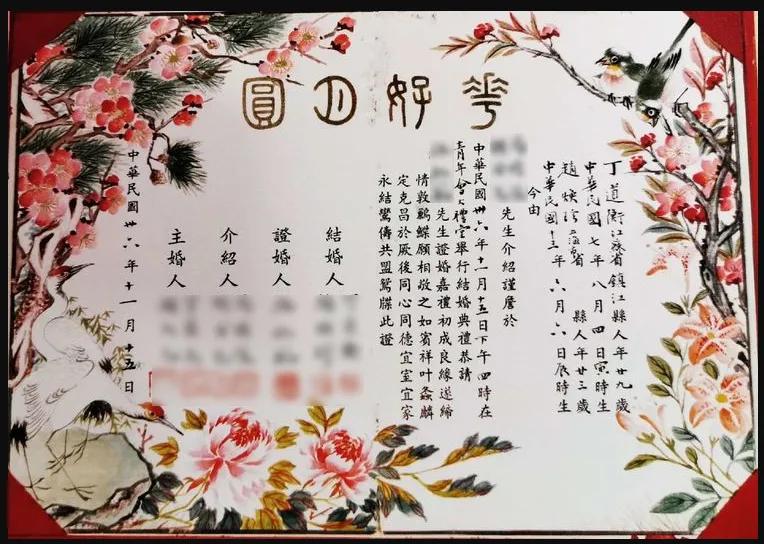 花好月圓
丁道衡江蘇省鎮江縣人年廿九歲
中華民國七年八月四日寅時生
趙煥珍上海省 縣人年廿三歲
中華民國十三年六月六日辰時生
今由
先生介紹謹詹於
中華民國卅六年十一月十五日下午四時在
青年會大禮堂舉行結婚典禮恭請
先生證婚嘉禮初成良緣遂締
情敦鶼鰈願相敬之如賓祥叶螽麟
定克昌於厥後同心同德宜室宜家
永結鸞儔共盟鴛牒此證
結婚人
證婚人
介紹人
主婚人
中華民國卅六年十一月十五日